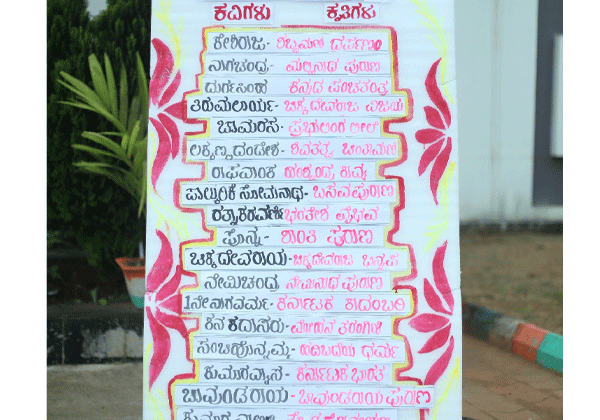 ಕವಿಗಳು ಕೃತಿಗಳು
ಕೇಶಿರಾಜ- ಶಬ್ದಮಣಿ ದರ್ಪಣಂ
ನಾಗಚಂದ್ರ- ಮಲ್ಲಿನಾಥ ಪುರಾಣ
ದುರ್ಗಸಿಂಹ ಕನ್ನಡ ಪಂಚತಂತ್ರ
ತಿರುಮಲಾರ್ಯ- ಚಿಕ್ಕದೇವರಾಜ ವಿಜಯ
ಚಾಮರಸ- ಪ್ರಭುಲಿಂಗ ಲೀಲೆ
ಲಕ್ಕಣ್ಣದಂಡೇಶ- ಶಿವತತ್ವ ಚಿಂತಾಮಣಿ
ರಾಘವಾಂಕ ಹರಿಶ್ಚಂದ್ರ ಕಾವ್ಯ
ಪಾಲ್ಕುರಿಕೆ ಸೋಮನಾಥ- ಬಸವಪುರಾಣ
ರತ್ನಾಕರವರ್ಣಿ ಭರತೇಶ ವೈಭವ
ಪೊನ್ನ- ಶಾಂತಿ ಪುರಾಣ
ಚಿಕ್ಕದೇವರಾಯ- ಚಿಕ್ಕದೇವರಾಜ ಬಿನ್ನಪ
ನೇಮಿಚಂದ್ರ ನೇಮಿನಾಥ ಪುರಾಣ
1ನೇ ನಾಗವರ್ಮ- ಕರ್ನಾಟಕ ಕಾದಂಬರಿ
ಕನಕದಾಸರು- ಮೋಹನ ತರಂಗಿಣಿ
ಸಂಚಿಹೊನ್ನಮ್ಮ- ಹದಿಬದೆಯ ಧರ್ಮ
ಕುಮಾರವ್ಯಾಸ- ಕರ್ನಾಟಕ ಭಾರತ
ಚಾವುಂಡರಾಯ- ಚಾವುಂಡರಾಯ ಪುರಾಣ